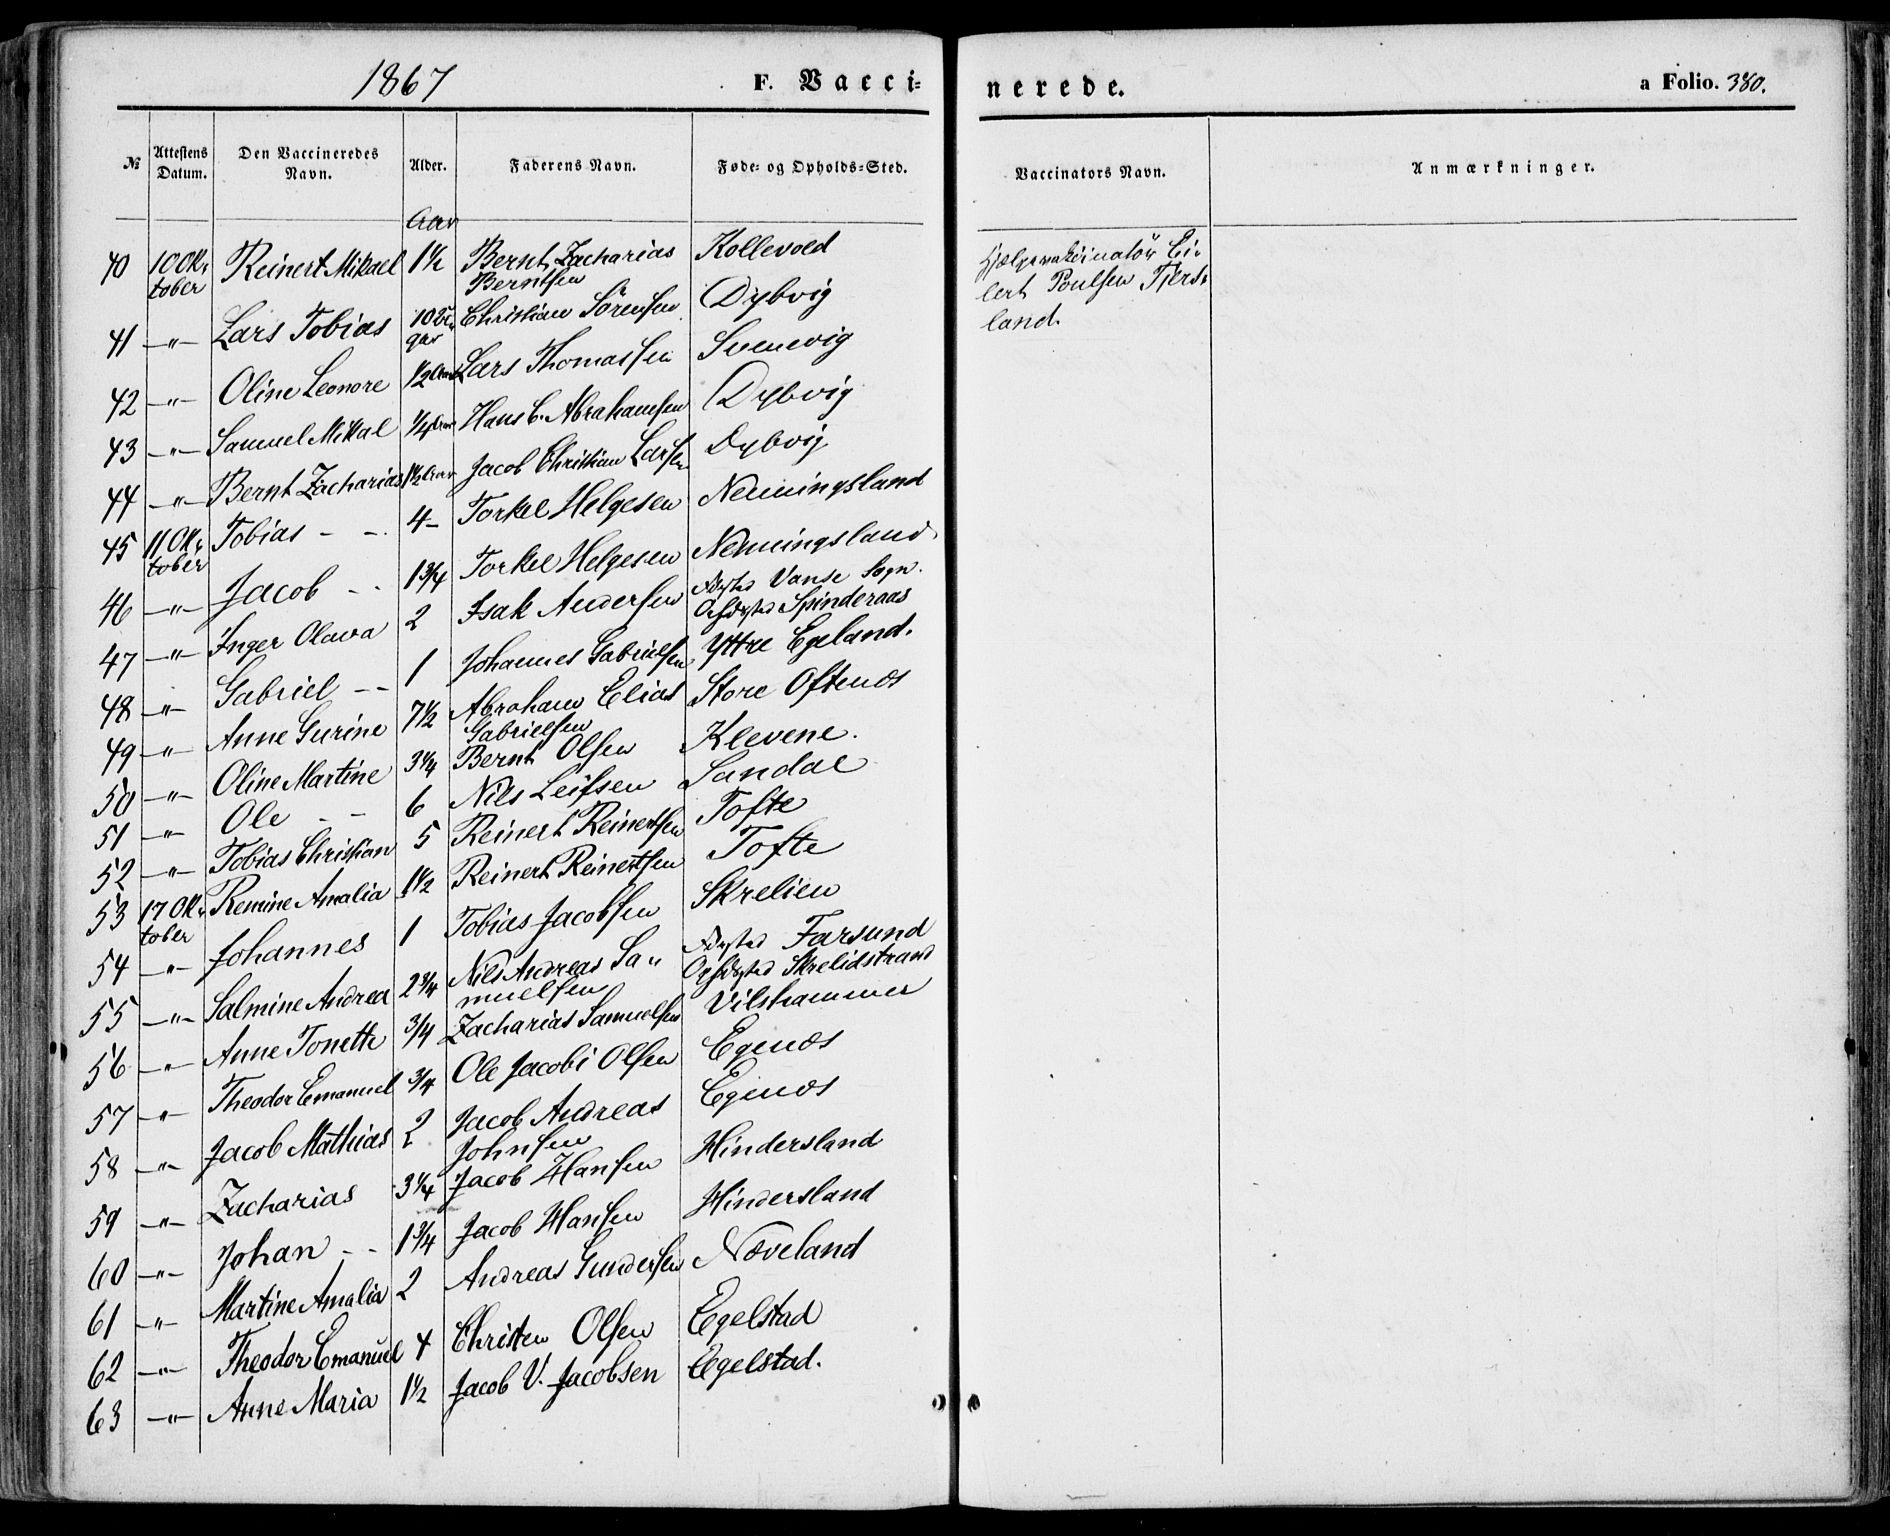 1867 F. Vacci-
nerede. a Folio. 380.
№ Attestens Datum. Den Vaccineredes Navn. Alder. Faderens Navn. Føde- og Opholds-Sted. Vaccinators Navn. Anmærkninger.
Aar
40 10 Ok- Reinert Mikael 1½ Bernt Zacharias Kollevold Hjælpevakcinatör Ei-
tober Berntsen lert Poulsen Tjers-
41 —"— Lars Tobias 10 Da- Christian Sörensen Dybvig land.
gar
42 —"— Oline Leonore ½ Aar Lars Thomassen Svenevig
43 —"— Samuel Mikal ¼ Aar Hans C. Abrahamsen Dybvig
44 —"— Bernt Zacharias 1½ Aar Jacob Christian Larsen Dybvig
45 11 Ok- Tobias - - 4 - Torkel Helgesen Nenningsland
tober
46 —"— Jacob - - 1¾ Torkel Helgesen Nenningsland
47 —"— Inger Olava 2 Isak Andersen Fdested Vanse Sogn.
Ophdsted Spinderaas
48 —"— Gabriel - - 1 Johannes Gabrielsen Yttre Egeland.
49 —"— Anne Gurine 7½ Abraham Elias Store Oftenæs
Gabrielsen
50 —"— Oline Martine 3¼ Bernt Olsen Klevene.
51 —"— Ole - - 6 Nils Leifsen Sandal
52 —"— Tobias Christian 5 Reinert Reinertsen Tofte
53 17 Ok- Remine Amalia 1½ Reinert Reinertsen Tofte
tober
54 —"— Johannes 1 Tobias Jacobsen Skrelien
55 —"— Salmine Andrea 2¾ Nils Andreas Sa- Fdested Farsund
muelsen Ophdsted Skrelidstrand
56 —"— Anne Tonette ¾ Zacharias Samuelsen Vilshammer
57 —"— Theodor Emanuel ¾ Ole Jacobi Olsen Egenæs
58 —"— Jacob Mathias 2 Jacob Andreas Egenæs
Johnsen
59 —"— Zacharias 3¼ Jacob Hansen Hindersland
60 —"— Johan - - 1¾ Jacob Hansen Hindersland
61 —"— Martine Amalia 2 Andreas Gundersen Næveland
62 —"— Theodor Emanuel 4 Christen Olsen Egelstad
63 —"— Anne Maria 1½ Jacob V. Jacobsen Egelstad.